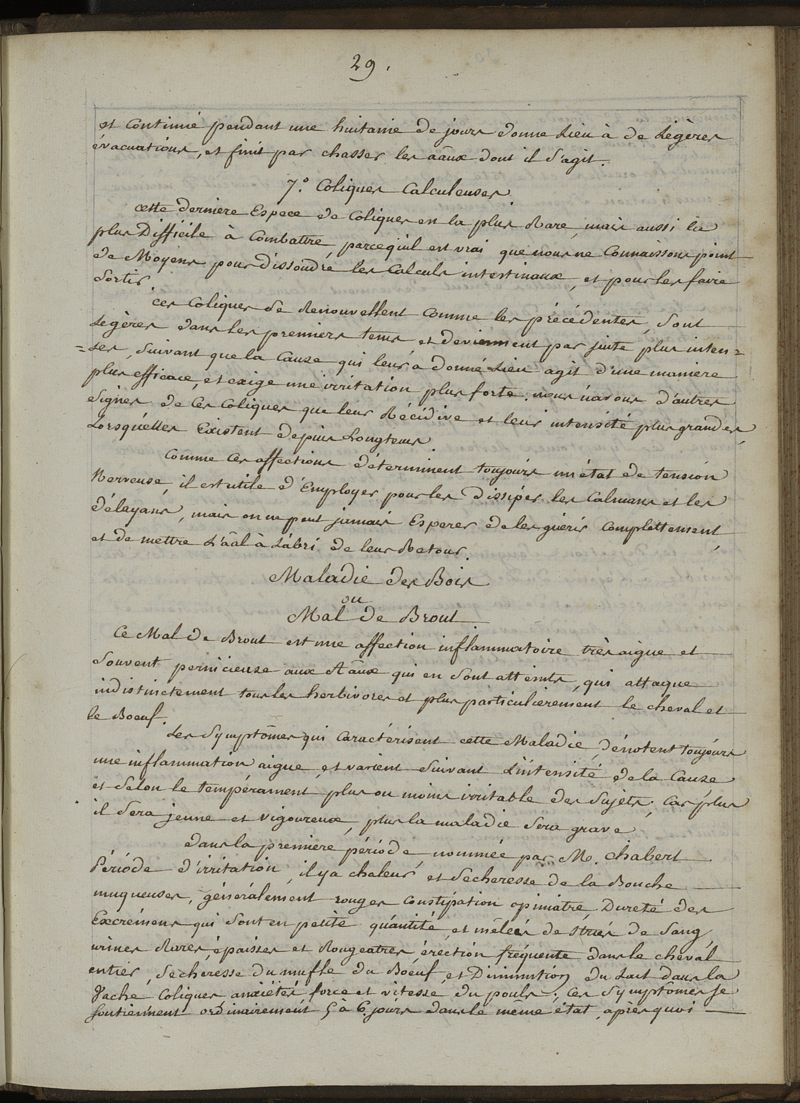 29.
et Continué pendant une huitaine de jours donne Lieu à de Légères
évacuations, et finit par chasser les aâux dont il s'agit.
7.° Coliques Calculeuses
cette derniere Espece de Coliques en la plus Rare, mais aussi la
plus Difficile à Combattre, parcequ'il est vrai que nous ne Connaissons point
de Moyens pour Dissoudre les Calculs intestinaux, et pour les faire
Sortir.
Ces Coliques se Renouvellent comme les précédentes, sont
Legères dans les premiers tems et deviennent par suite plus inten=
=ses, Suivant que la Cause qui leur a donné Lieu agit d'une maniere
plus efficace, et exige une irritation plus forte: nous n'avons d'autres
Signes de Ces Coliques que leur Récidive et leur intensité plus grandes
Lorsqu'elles Existent depuis Longtems
Comme Ces affections déterminent toujours un état de tension
Nerveuse, il est utile d'Employer pour les Dissiper les Calmans et les
délayans, mais on ne peut jamais Esperer de les guérir Complettement
et de mettre L'aâl à L'abri de leur Retour.
Maladie des Bois
ou
Mal de Brout
Ce Mal de Brout est une affection inflammatoire très aigue et
Souvent pernicieuse aux Aâux qui en Sont atteints, qui attaque
indistinctement tous les herbivores et plus particulierement le cheval et
le Boeuf.
Les Symptômes qui Caractérisent cette Maladie, dénotent toujours
une inflammation aigue, et varient Suivant L'intensité de la Cause
et Selon le tempérament plus ou moins irritable des Sujets; Car plus
il Sera jeune et vigoureux, plus la maladie Sera grave
dans la premiere période nommée par M. Chabert
Période d'irritation, il y a chaleur, et Secheresse de la Bouche
muqueuses, généralement rouges Constipation opiniatre, Dureté des
Excrémens qui Sont en petite quantité et mêlées de Stries de Sang,
urines Rares, épaisses et Rougeatres, érection fréquente dans le cheval
entier, Secheresse du mufle du Boeuf, et Diminution du Lait dans la
Vache Coliques anxiétés force et vitesse du pouls; Ces Symptômes se
soutiennent ordinairement 5 à 6 jours dans le même état, après quoi